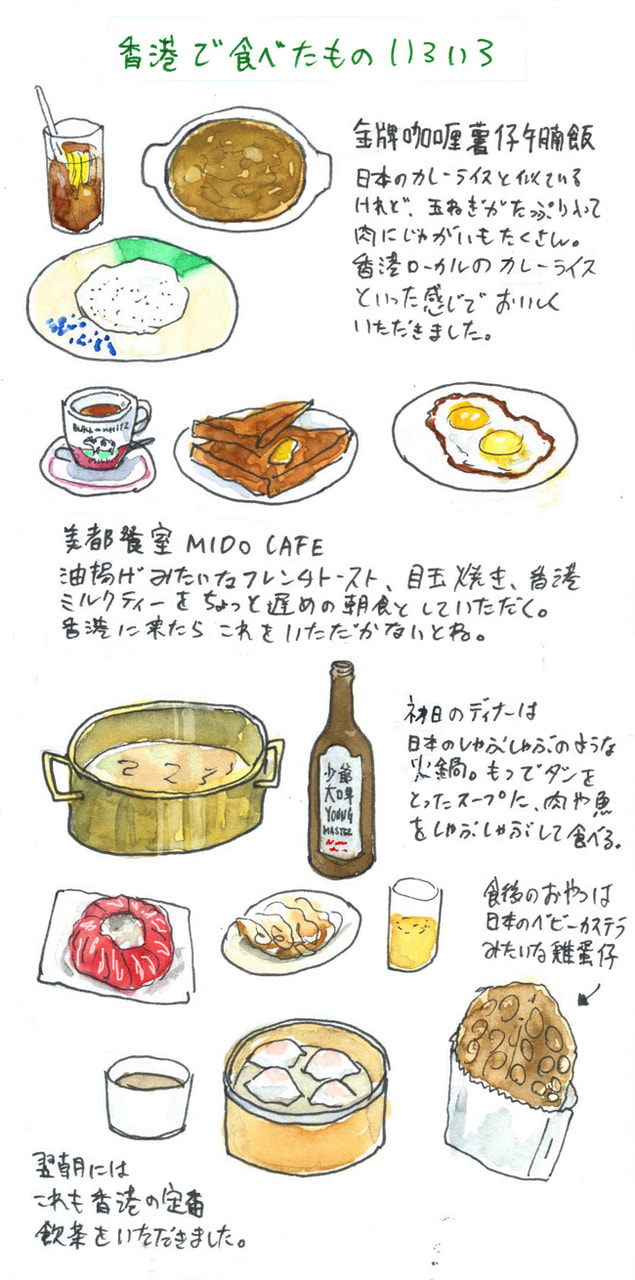 香港で食べたもの いろいろ
金牌咖喱薯仔牛腩飯
日本のカレーライスと似ている
けれど、玉ねぎがたっぷり入って
肉にじゃがいもたくさん。
香港ローカルのカレーライス
といった感じで おいしく
いただきました。
BLACK & WHITE
美都餐室 MIDO CAFE
油揚げみたいなフレンチトースト、目玉焼き、香港
ミルクティーをちょっと遅めの朝食としていただく。
香港に来たら これをいただかないとね。
初日のディナーは
日本のしゃぶしゃぶのような
火鍋。もつでダシを
とったスープに、肉や魚
をしゃぶしゃぶして食べる。
少爺
YOUNG
MASTER
食後のおやつは
日本のベビーカステラ
みたいな雞蛋仔
翌朝には
これも香港の定番
飲茶をいただきました。